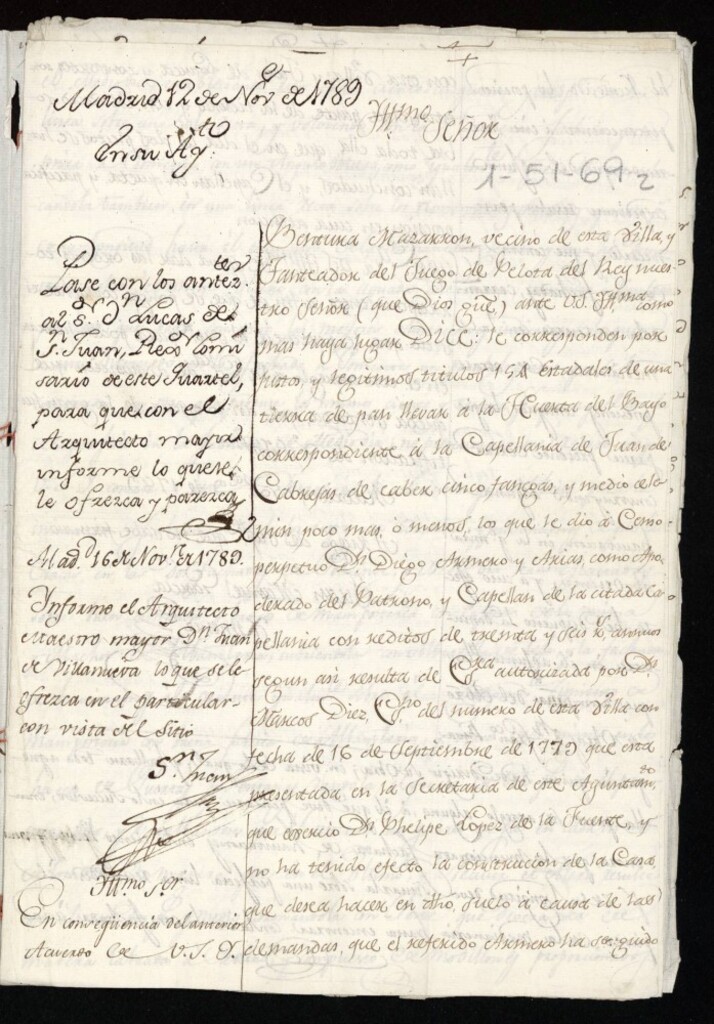 Madrid 12 de Nov.e de 1789
En su Ay.to
Yllmo Señor
1-51-69 2
Pase con los antez.tes
al S.or D.n Lucas de
S.n Juan, Rex.or Comi
sario de este Quartel,
para que con el
Arquitecto mayor
informe lo que se
le ofrezca y parezca
Mad.d 16 de Nov.re de 1789.
Informe el Arquitecto
Maestro mayor D.n Juan
de Villanueva lo que se le
ofrezca en el particular
con vista del sitio
S.n Juan
Yllmo S.or
En conseqüencia del anterior
Acuerdo de V.S.Y.
Bentura Mazarron, vecino de esta Villa, y
Tanteador del Juego de Pelota del Rey nues-
tro Señor (que Dios gũe) ante V.S. Yllma como
mas haya lugar DICE: le corresponden por
justos, y legitimos titulos 151 Estadales de una
tierra de pan llevar à la Huerta del Bayo
correspondiente à la Capellania de Juan de
Cabrejas de caber cinco fanegas, y medio cele-
min poco mas, ò menos, los que le dio à Censo
perpetuo D.n Diego Armero y Arias, como Apo-
derado del Patrono, y Capellan de la citada Ca-
pellania con reditos de treinta y seis r.s annuos
segun asi resulta de Es.ra autorizada por D.n
Marcos Diez, Es.no del numero de esta Villa con
fecha de 16 de Septiembre de 1779 que esta
presentada en la Secretaria de este Ayuntam.to
que exercio D.n Phelipe Lopez de la Fuente, y
no ha tenido efecto la construcion de la Casa
que desea hacer en dho. suelo à causa de las
demandas, que el referido Armero ha seguido